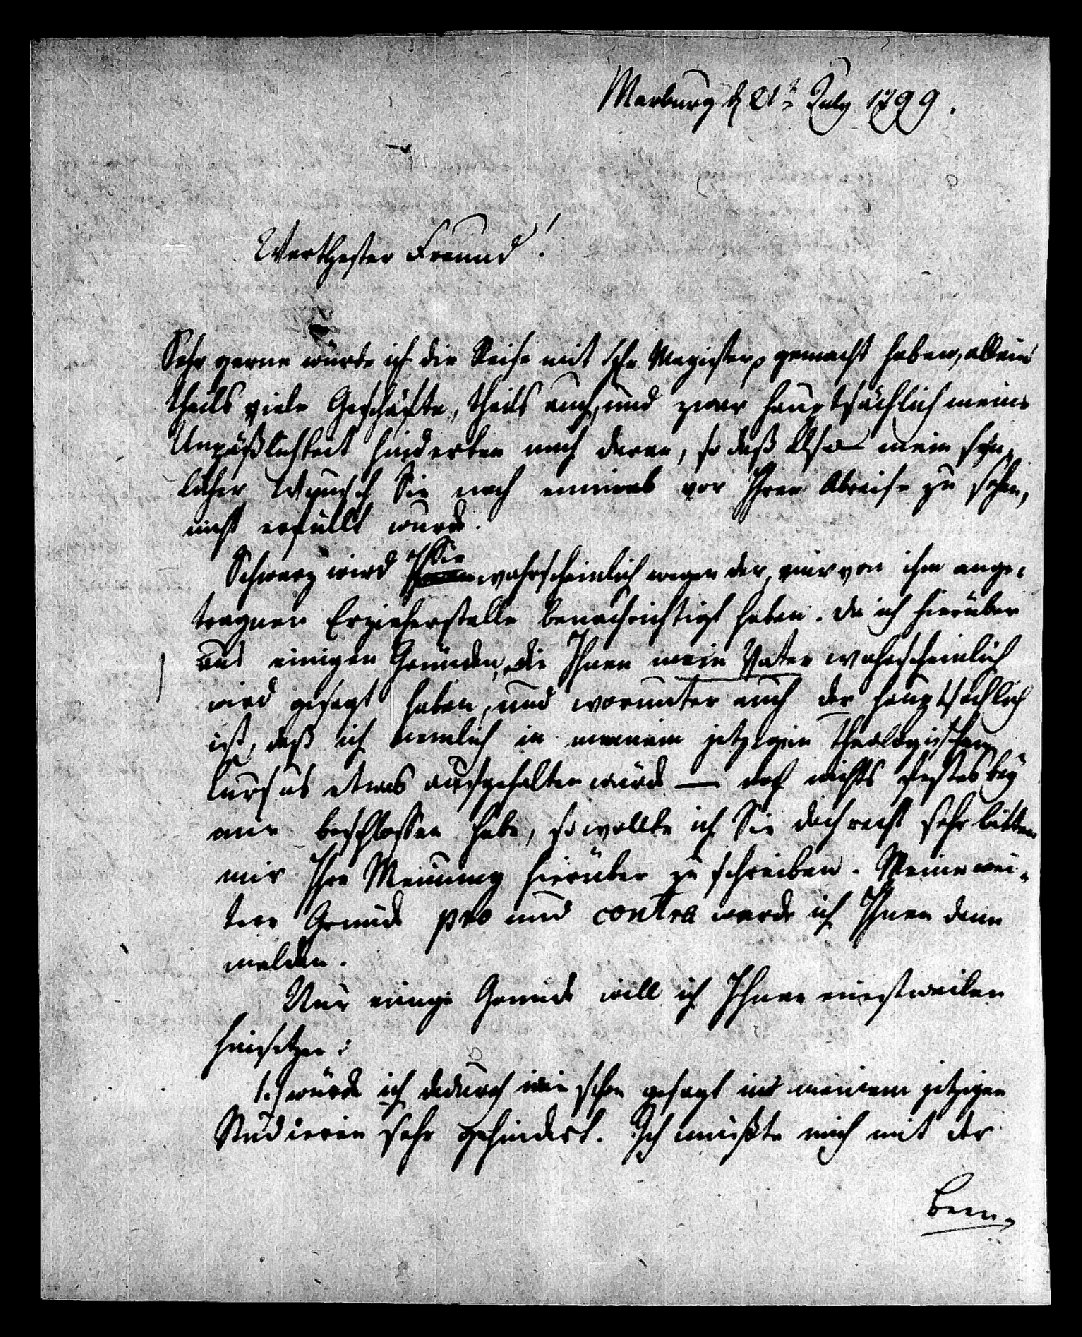 Marburg d 21t July 1799.
Werthester Freund!
Sehr gerne würde ich die Reise mit Hr. Magister gemacht haben, allein
theils viele Geschäfte, theils auch, und zwar hauptsächlich meine
Unpäßlichkeit hinderten mich daran, so daß also mein sehn-
licher Wunsch Sie noch einmal vor Ihrer Abreise zu sehen,
nicht erfüllt wurde.
Schwarz wird Sie wahrscheinlich wegen der, mir von ihm ange-
tragnen Erzieherstelle benachrichtigt haben. Da ich hierüber
aus einigen Gründen, die Ihnen mein Vater wahrscheinlich
wird gesagt haben, und worunter auch der hauptsächlich
ist, daß ich nemlich in meinem jetzigen theologischen
Cursus etwas aufgehalten würde — noch nichts festes bey
mir beschlossen habe, so wollte ich Sie doch recht sehr bitten
mir Ihre Meinung hierüber zu schreiben. Meine wei-
tere Gründe pro und contra werde ich Ihnen dann
melden.
Nur einige Gründe will ich Ihnen einstweilen
hinsetzen:
1.) würde ich dadurch wie schon gesagt in meinem jetzigen
Studieren sehr gehindert. Ich müßte mich mit der